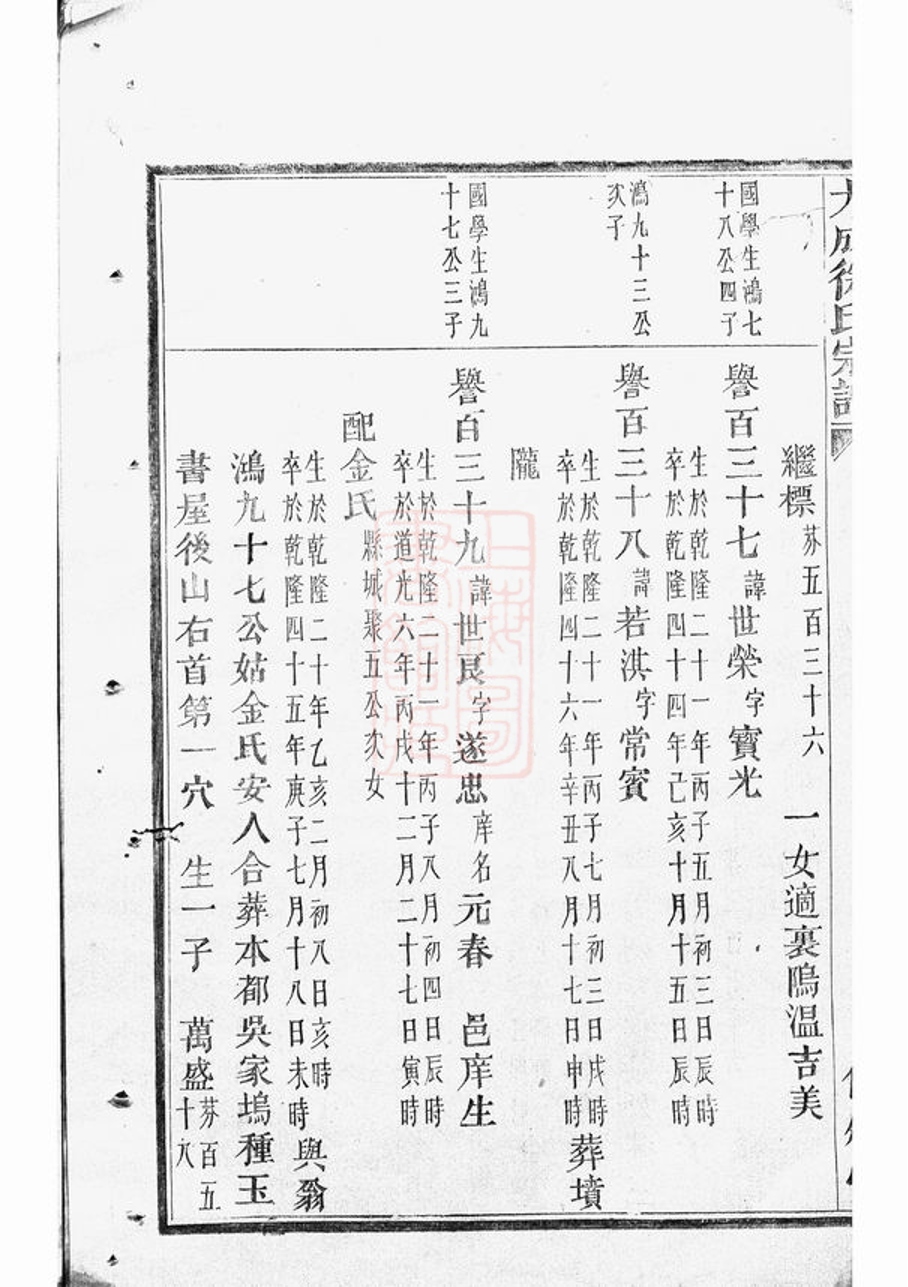 大成徐氏宗譜
繼標 芬五百三十六 一女適裏隖溫吉美
國學生鴻七
十八公四子
譽百三十七 諱世榮字寶光
生於乾隆二十一年丙子五月初三日辰時
卒於乾隆四十四年己亥十月十五日辰時
鴻九十三公
次子
譽百三十八 諱若淇字常賓
生於乾隆二十一年丙子七月初三日戌時
卒於乾隆四十六年辛丑八月十七日申時 葬墳
隴
國學生鴻九
十七公三子
譽百三十九 諱世良字遂忠 庠名元春 邑庠生
生於乾隆二十一年丙子八月初四日辰時
卒於道光六年丙戌十二月二十七日寅時
配金氏 縣城聚五公次女
生於乾隆二十年乙亥二月初八日亥時
卒於乾隆四十五年庚子七月十八日未時 與翁
鴻九十七公姑金氏安人合葬本都吳家塢種玉
書屋後山右首第一穴 生一子 萬盛 芬百五十六